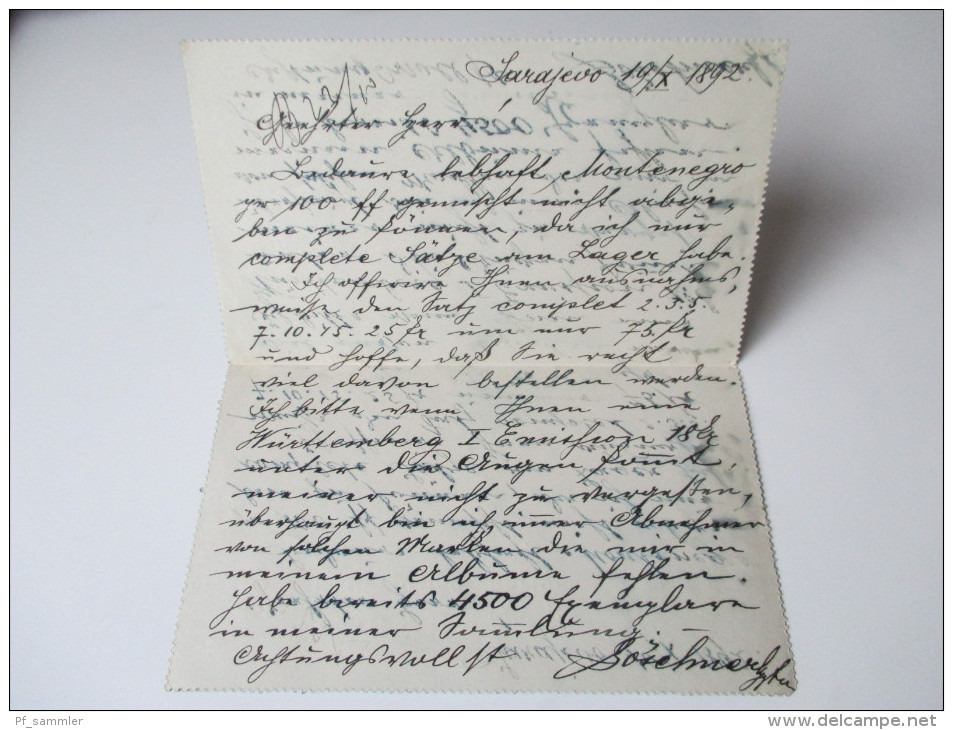 Sarajevo 19/X 1892.
Geehrter Herr!
Bedaure lebhaft, Montenegro
pr 100 ff gemischt nicht abge-
ben zu können, da ich nur
complete Sätze am Lager habe.
Ich offerire Ihnen ausnahms-
weise den Satz complet 2.3.5.
7.10.15.25 kr um nur 75 kr
und hoffe, daß Sie recht
viel davon bestellen werden.
Ich bitte wenn Ihnen eine
Württemberg I Emission 18 kr
unter die Augen kommt,
meiner nicht zu vergessen,
überhaupt bin ich immer Abnehmer
von solchen Marken die mir in
meinem Albume fehlen.
Habe bereits 4500 Exemplare
in meiner Sammlung. —
Achtungsvollst
Pf_sammler
http://www.delcampe.net